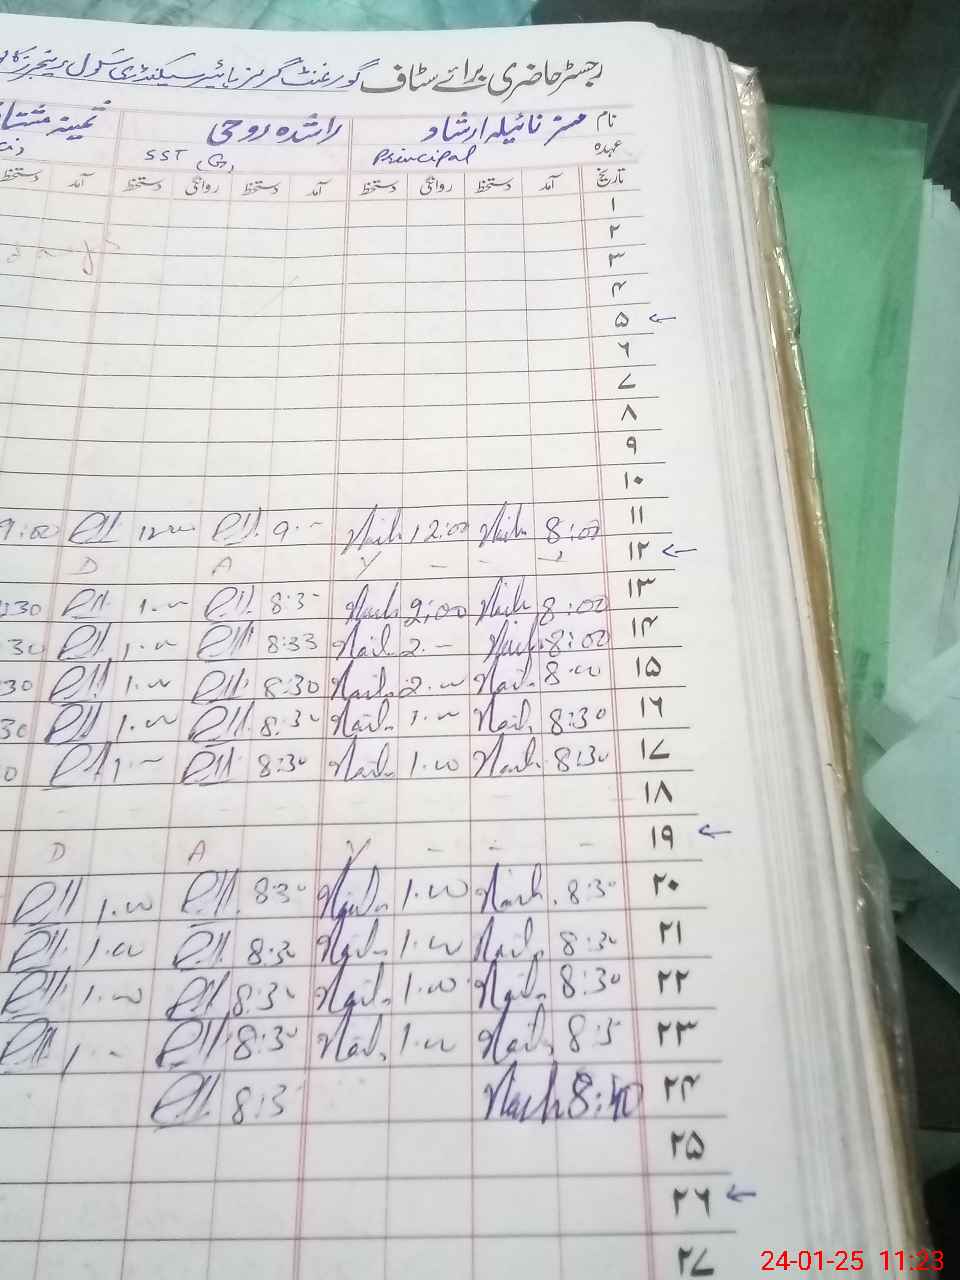 رجسٹر حاضری برائے سٹاف گورنمنٹ گرلز ہائیر سیکنڈری سکول
نام مسز نائیلہ ارشاد راشدہ روحی ثمینہ
عہدہ Principal SST (G)
تاریخ آمد دستخط روانگی دستخط آمد دستخط روانگی دستخط آمد دستخط
۱
۲
۳
۴
۵ ←
۶
۷
۸
۹
۱۰
۱۱ 8:00 Naila 12:00 Naila 9:00
۱۲ ← Y A D
۱۳ 8:00 Naila 2:00 Naila 8:30 1:00
۱۴ 8:00 Naila 2:00 Naila 8:33 1:00 30
۱۵ 8:00 Naila 2:00 Naila 8:30 1:00 30
۱۶ 8:30 Naila 1:00 Naila 8:30 1:00 30
۱۷ 8:30 Naila 1:00 Naila 8:30 1:00
۱۸
۱۹ ← Y A D
۲۰ 8:30 Naila 1:00 Naila 8:30 1:00
۲۱ 8:30 Naila 1:00 Naila 8:30 1:00
۲۲ 8:30 Naila 1:00 Naila 8:30 1:00
۲۳ 8:3 Naila 1:00 Naila 8:30 1:00
۲۴ 8:40 Naila 8:3
۲۵
۲۶ ←
۲۷
24-01-25 11:23